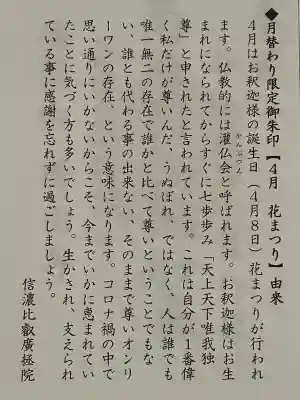 ◆月替わり限定御朱印【4月　花まつり】由来
4月はお釈迦様の誕生日（4月8日）花まつりが行われ
ます。仏教的には灌仏会と呼ばれます。お釈迦様はお生
かんぶつえ
まれになられてからすぐに七歩歩み「天上天下唯我独
尊」と申されたと言われています。これは自分が1番偉
く私だけが尊いんだ、うぬぼれ、ではなく、人は誰でも
唯一無二の存在で誰かと比べて尊いということでもな
い、誰とも代わる事の出来ない、そのままで尊いオンリ
ーワンの存在、という意味になります。コロナ禍の中で
思い通りにいかないからこそ、今までいかに恵まれてい
たことに気づく方も多いでしょう。生かされ、支えられ
ている事に感謝を忘れずに過ごしましょう。
信濃比叡廣拯院